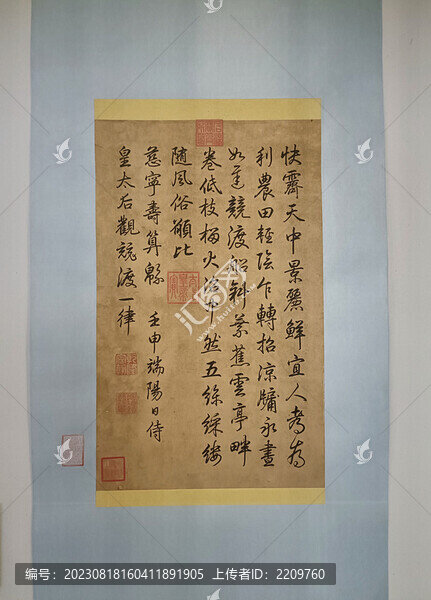 快霽天中景麗鮮宜人為
利農田輕陰乍轉招涼牖永晝
如競渡船斜蕉雲亭畔
卷低枝榴火然五絲綵縷
隨風俗願比
慈寧壽算緜 壬申端陽日侍
皇太后觀競渡一律
编号:20230818160411891905 上传者ID:2209760